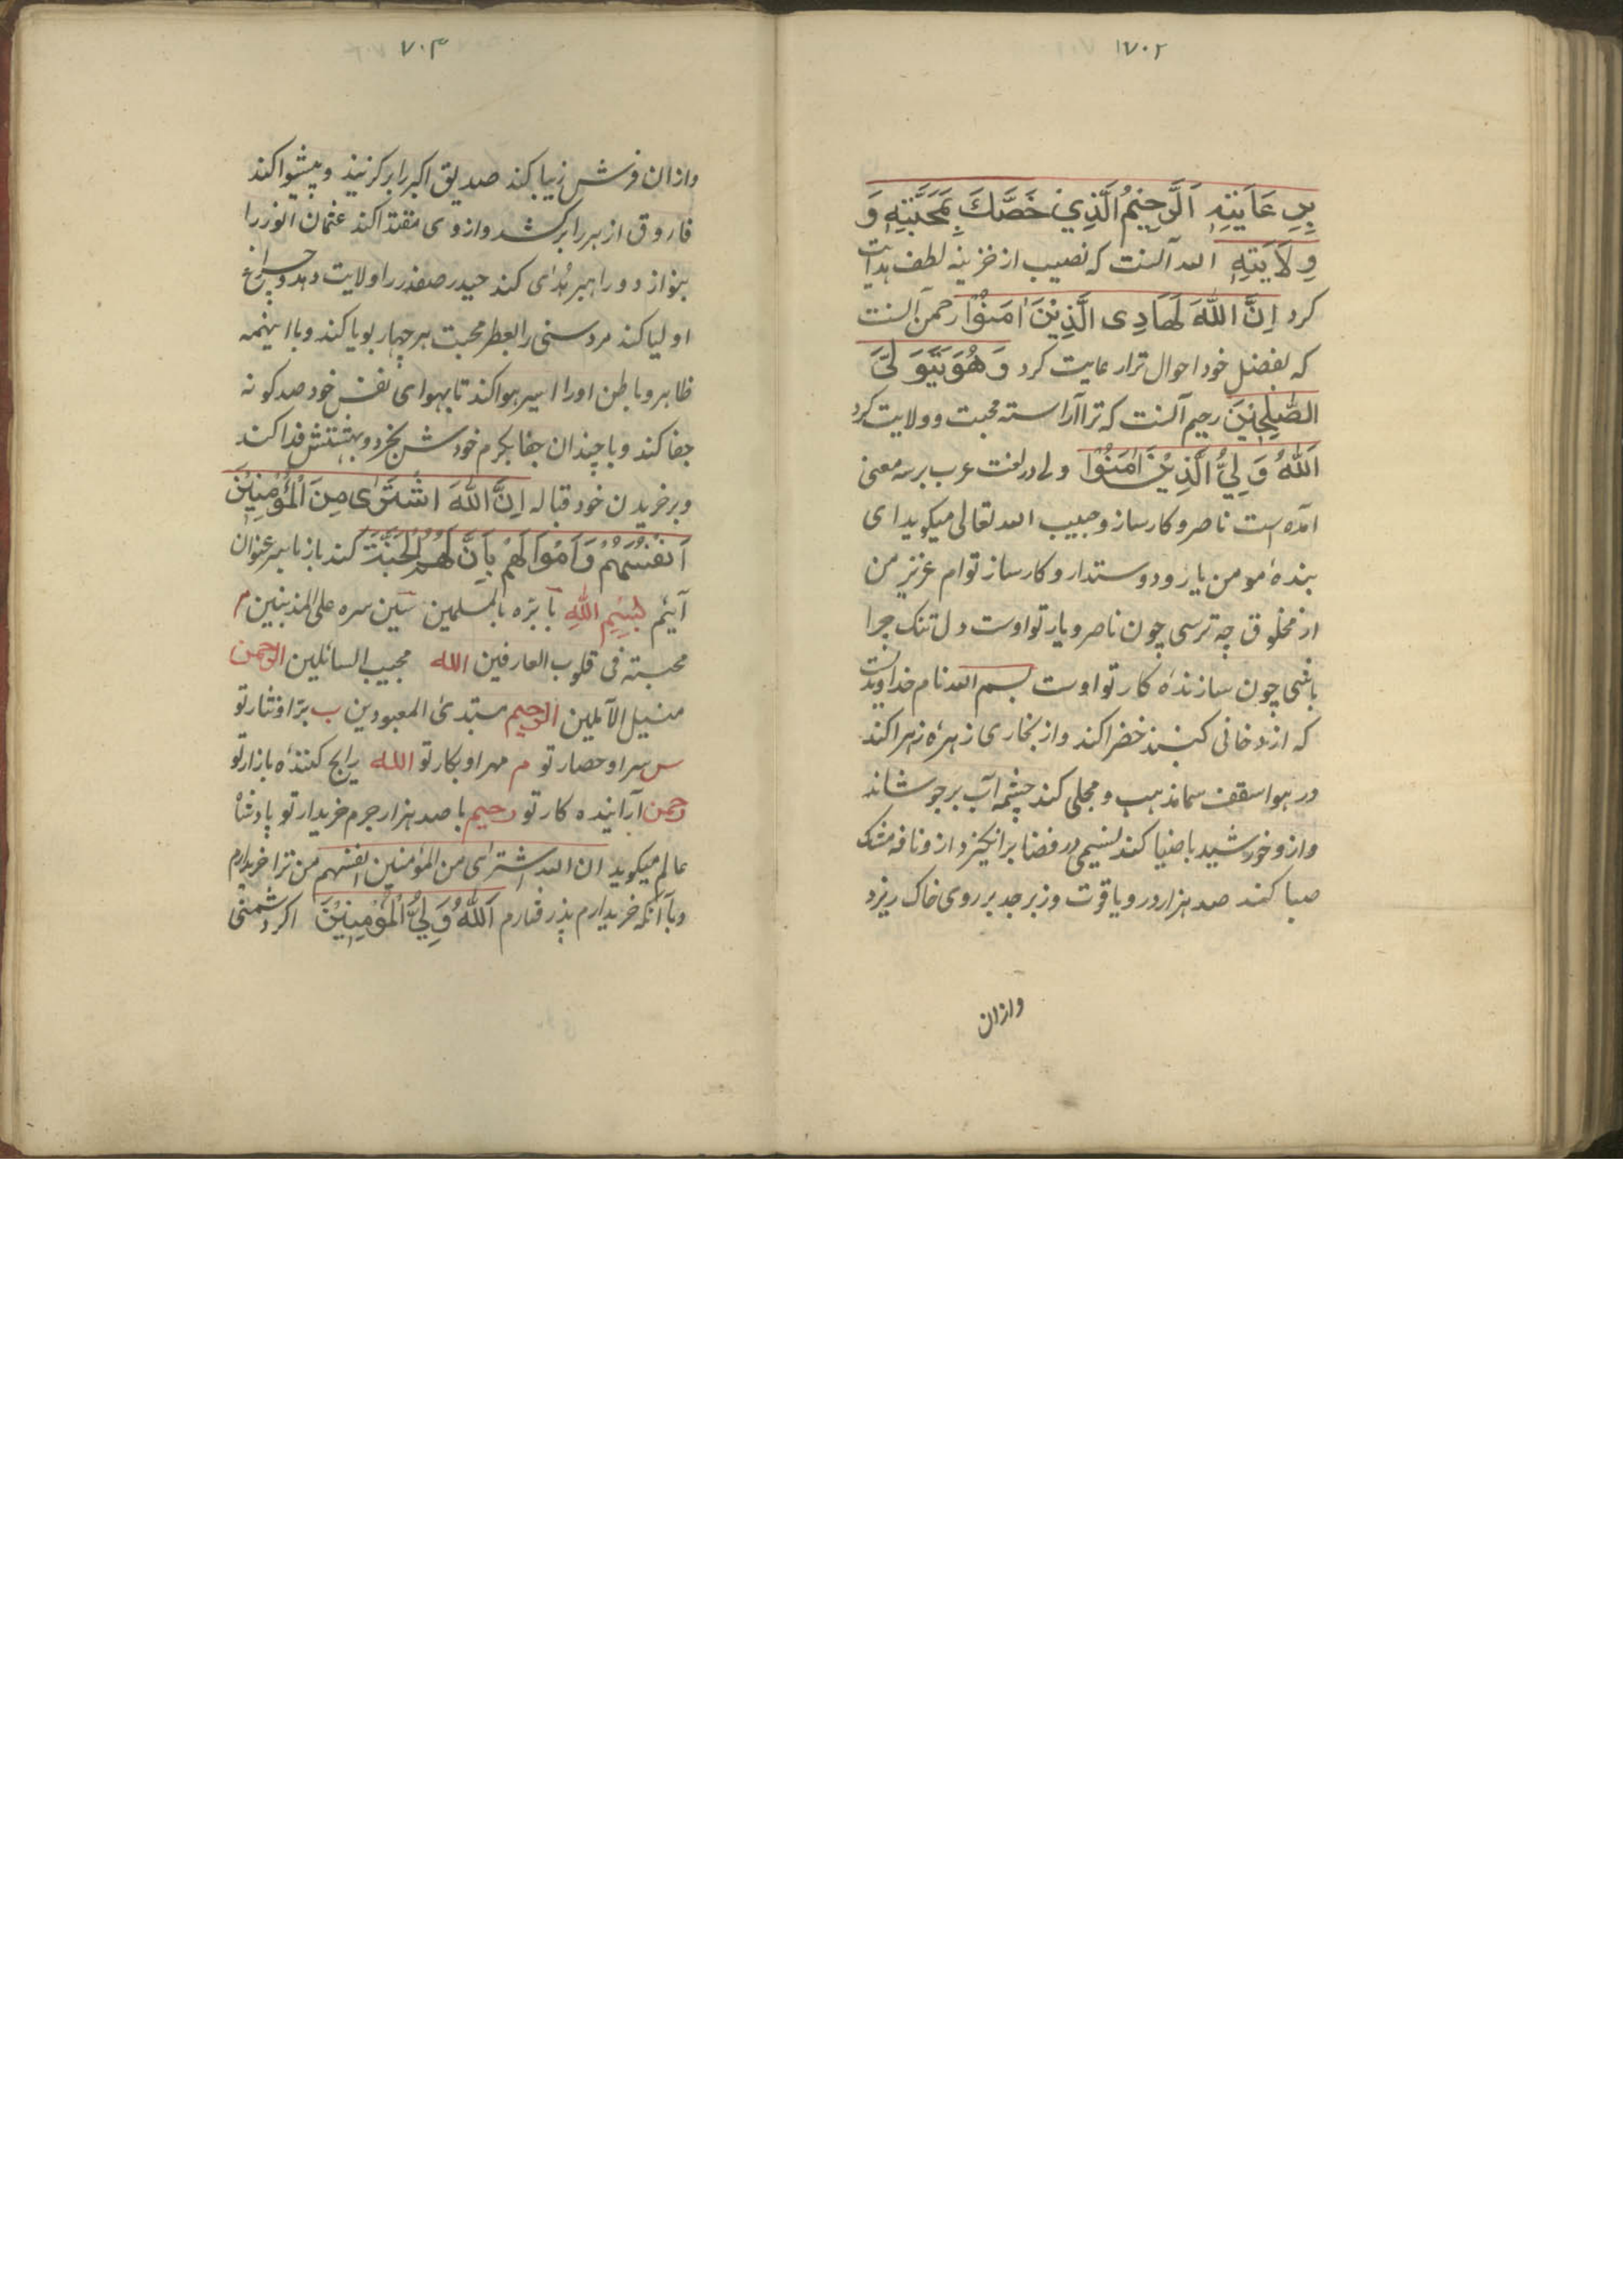 ۷۰۲
بِرِعَايَتِهِ اَلرَّحِيْمُ الَّذِيْ خَصَّكَ بِمَحَبَّتِهِ وَ
وِلَايَتِهِ الله آنست که نصیب از خزینه لطف هدایت
کرد اِنَّ اللّٰهَ لَهَادِی الَّذِیْنَ اٰمَنُوْا رحمن آنست
که بفضل خود احوال ترا رعایت کرد وَهُوَ يَتَوَلَّى
الصّٰلِحِيْنَ رحیم آنست که ترا آراسته محبت و ولایت کرد
اَللّٰهُ وَلِيُّ الَّذِيْنَ اٰمَنُوْا ولی در لغت عرب بر سه معنی
آمده است ناصر و کارساز و حبیب الله تعالی میکوید ای
بندهٔ مومن یار و دوستدار و کارساز توام عزیز من
از مخلوق چه ترسی چون ناصر و یار تو اوست دل تنک چرا
باشی چون سازندهٔ کار تو اوست بسم الله نام خداوندیست
که از دخانی کنبد خضرا کند و از بخاری زهرهٔ زهرا کند
در هوا سقف سما مذهب و مجلی کند چشمه آب بر جوشاند
و ازو خورشید با ضیا کند نسیمی در فضا برانکیزد از و نافه مشک
صبا کند صد هزار در و یاقوت و زبرجد بر روی خاک ریزد
وازان
۷۰۳
وازان فرش زیبا کند صدیق اکبر را برکزیند و پیشوا کند
فاروق ازهر را برکشد و از وی مقتدا کند عثمان انور را
بنوازد و راهبر هُدای کند حیدر صفدر را ولایت دهد و چراغ
اولیا کند مرد سنی را بعطر محبت هر چهار بویا کند و با اینهمه
ظاهر و باطن او را اسیر هوا کند تا بهوای نفس خود صد کونه
جفا کند و با چندان جفا بکرم خودش بخرد و بهشتش فدا کند
و بر خریدن خود قباله اِنَّ اللّٰهَ اشْتَرٰی مِنَ الْمُؤْمِنِيْنَ
اَنْفُسَهُمْ وَاَمْوَالَهُمْ بِاَنَّ لَهُمُ الْجَنَّةَ کند باز با سر عنوان
آیم بِسْمِ اللّٰهِ با بِرّه بالمسلمین سین سره علی المذنبین م
محبته فی قلوب العارفین الله مجیب السائلین الرحمن
منیل الآملین الرحیم مبتدئ المعبودین ب برّ او نثار تو
س سر او حصار تو م مهر او بکار تو الله رایج کنندهٔ بازار تو
رحمن آراینده کار تو رحیم با صد هزار جرم خریدار تو پادشاه
عالم میکوید ان الله اشتری من المؤمنین انفسهم من ترا خریدارم
و با آنکه خریدارم پذرفتارم اَللّٰهُ وَلِيُّ الْمُؤْمِنِيْنَ اکر دشمنی